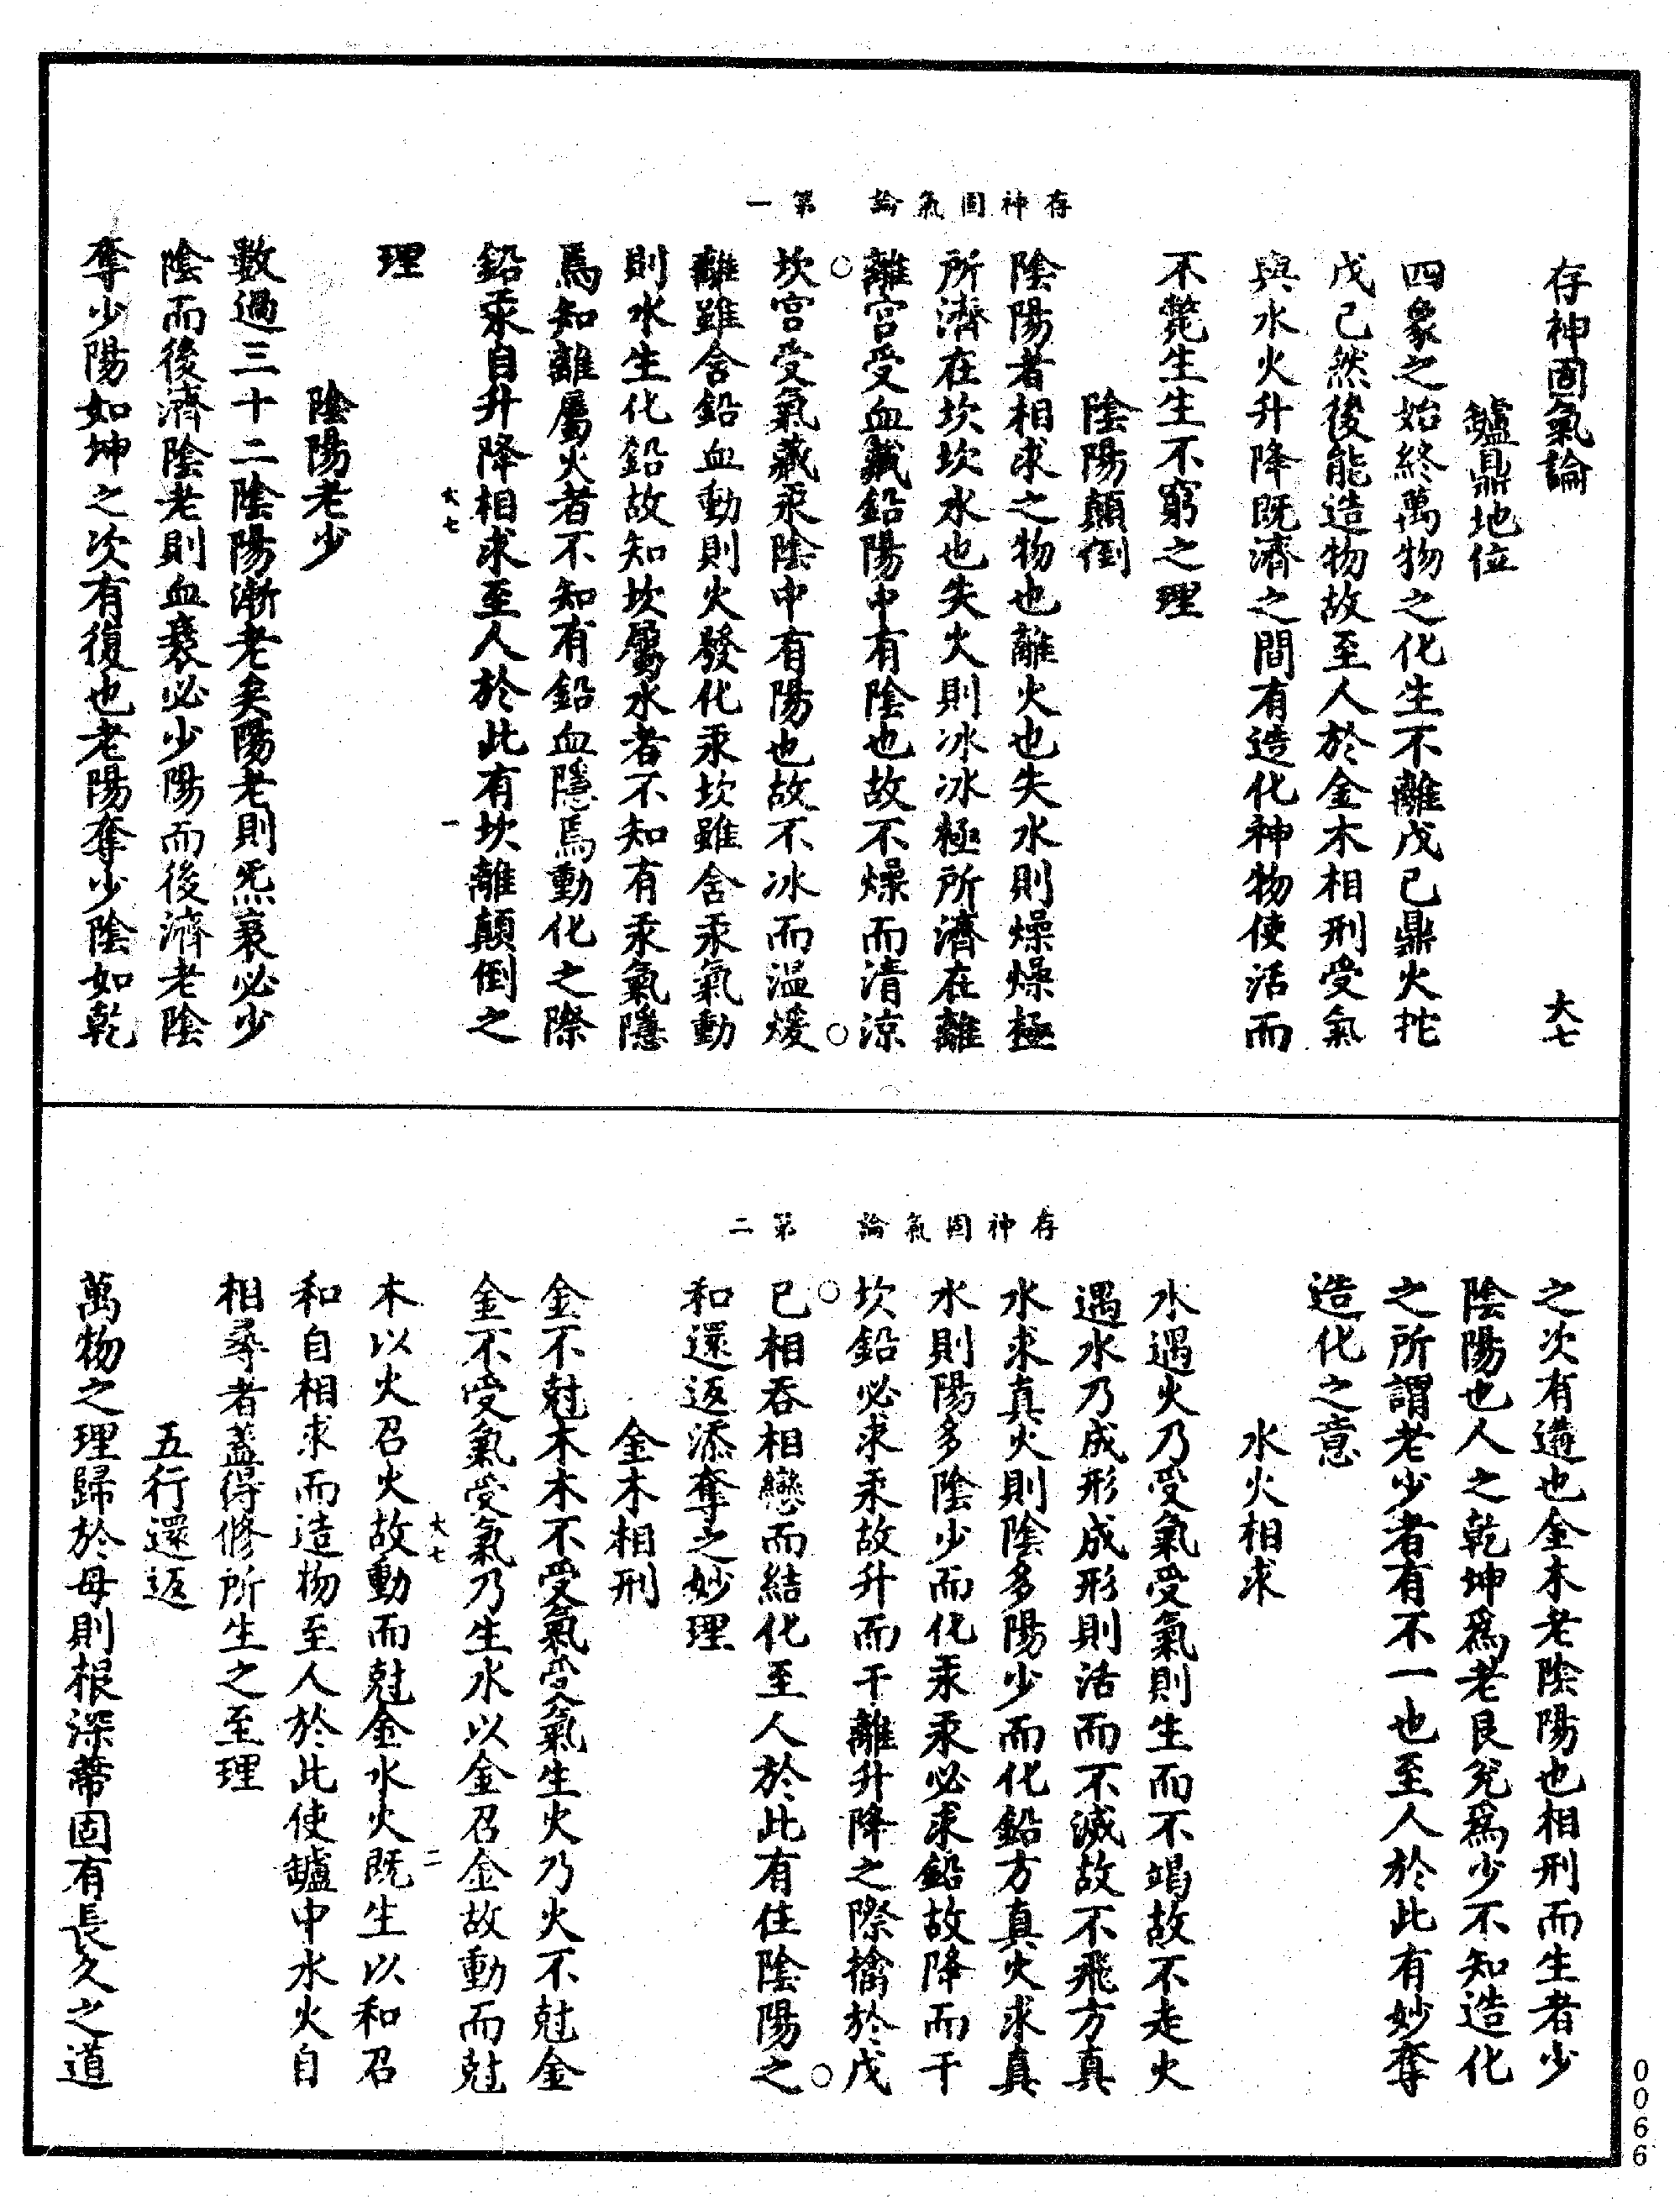 存神固氣論　大七
鑪鼎地位
四象之始終萬物之化生不離戊己鼎火挓
戊己然後能造物故至人於金木相刑受氣
與水火升降既濟之間有造化神物使活而
不斃生生不窮之理
陰陽顛倒
陰陽者相求之物也離火也失水則燥燥極
所濟在坎坎水也失火則冰冰極所濟在離
離宮受血藏鉛陽中有陰也故不燥而清涼
存神固氣論　第一
坎宮受氣藏汞陰中有陽也故不冰而温煖
離雖含鉛血動則火發化汞坎雖含汞氣動
則水生化鉛故知坎屬水者不知有汞氣隱
焉知離屬火者不知有鉛血隱焉動化之際
鉛汞自升降相求至人於此有坎離顛倒之
大七　一
理
陰陽老少
數過三十二陰陽漸老矣陽老則炁衰必少
陰而後濟陰老則血衰必少陽而後濟老陰
奪少陽如坤之次有復也老陽奪少陰如乾
之次有遘也金木老陰陽也相刑而生者少
陰陽也人之乾坤爲老艮兌爲少不知造化
之所謂老少者有不一也至人於此有妙奪
造化之意
水火相求
水遇火乃受氣受氣則生而不竭故不走火
遇水乃成形成形則活而不滅故不飛方真
水求真火則陰多陽少而化鉛方真火求真
水則陽多陰少而化汞汞必求鉛故降而干
坎鉛必求汞故升而干離升降之際擒於戊
存神固氣論　第二
己相吞相戀而結化至人於此有住陰陽之
和還返添奪之妙理
金木相刑
金不尅木木不受氣受氣生火乃火不尅金
金不受氣受氣乃生水以金召金故動而尅
木以火召火故動而尅金水火既生以和召
大七　二
和自相求而造物至人於此使鑪中水火自
相尋者蓋得修所生之至理
五行還返
萬物之理歸於母則根深蔕固有長久之道
0066